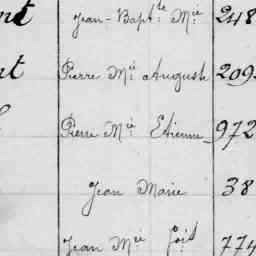 Jean-Bapt.te M.ie 248
Pierre M.ie August 209
Pierre M.ie Etienne 972
Jean Marie 38
Jean M.ie 774